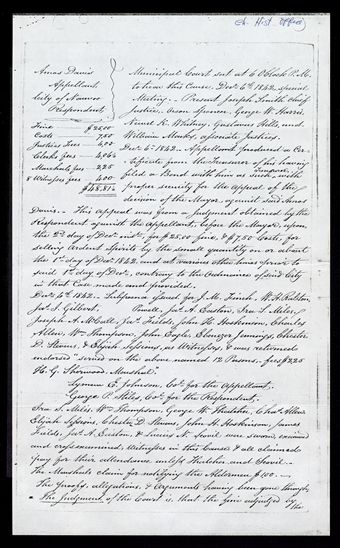 Ch. Hist. Office
Amos Davis
Appellant
City of Nauvoo
Respondent
Fine $25,00
Costs 7,50
Justices Fees
Clerks Fees
Marshals fees 2,25
8 Witnesses fees 4,00
Municipal Court sat at 6 O'Clock P.M.
to hear this Cause, Decr. 6th 1842, special
Meeting. - Present Joseph Smith Chief
Justice, Orson Spencer, George W. Harris,
Newel K. Whitney, Gustavus Hills, and
William Marks, associate Justices.
Dec. 6th 1842. Appellant Produced a Cer-
tificate from the Treasurer of his having
filed a Bond with him as such, with
Treasurer
proper security for the Appeal of the
decision of the Mayor, against said Amos
Davis. - This appeal was from a Judgment obtained by the
Respondent against the Appellant, before the Mayor, upon
the 2d day of Decr. inst., for $25,00 fine, & $7,50 Costs, for
selling Ardent Spirits by the small quantity on or about
the 1st day of Decr. 1842 and at various other times prior to
said 1st day of Decr., contrary to the Ordinances of said City
in that Case made and provided.
Decr. 6th 1842. - Subpoena issued for J. M. Finch, W. H. Ralston,
Jas. J. Gilbert, Powell, Jas. A. Easton, Ira S. Miles,
Joseph A. McCall, Jas. Fields, John H. Hoskinson, Charles
Allen, Wm. Thompson, John Eagle, Ebenezer Jennings, Chester
D. Stevens, & Elijah Jefsions, as Witnesses, & was returned
endorsed "served on the above named 12 Persons. fees $2,25
H. G. Sherwood Marshal."
Lyman E. Johnson, Col. for the Appellant,
George P. Stiles, Col. for the Respondent,
Ira S. Miles, Wm. Thompson, George W. Thatcher, Chas. Allen
Elijah Jefsions, Chester D. Stevens, John H. Hoskinson, James
Fields, Jas. A. Easton, & Lucius N. Scovil were sworn, examined
and crossexamined, Witnesses in this Cause & all claimed
pay for their attendance unless Thatcher and Scovil. -
The Marshals claim for notifying the Aldermen
The Proofs, allegations, & Arguments having been gone through,
The Judgment of the Court is, that the fine adjudged by
the